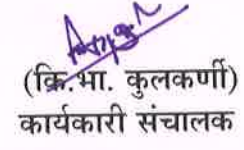 (कि.भा. कुलकर्णी)
कार्यकारी संचालक